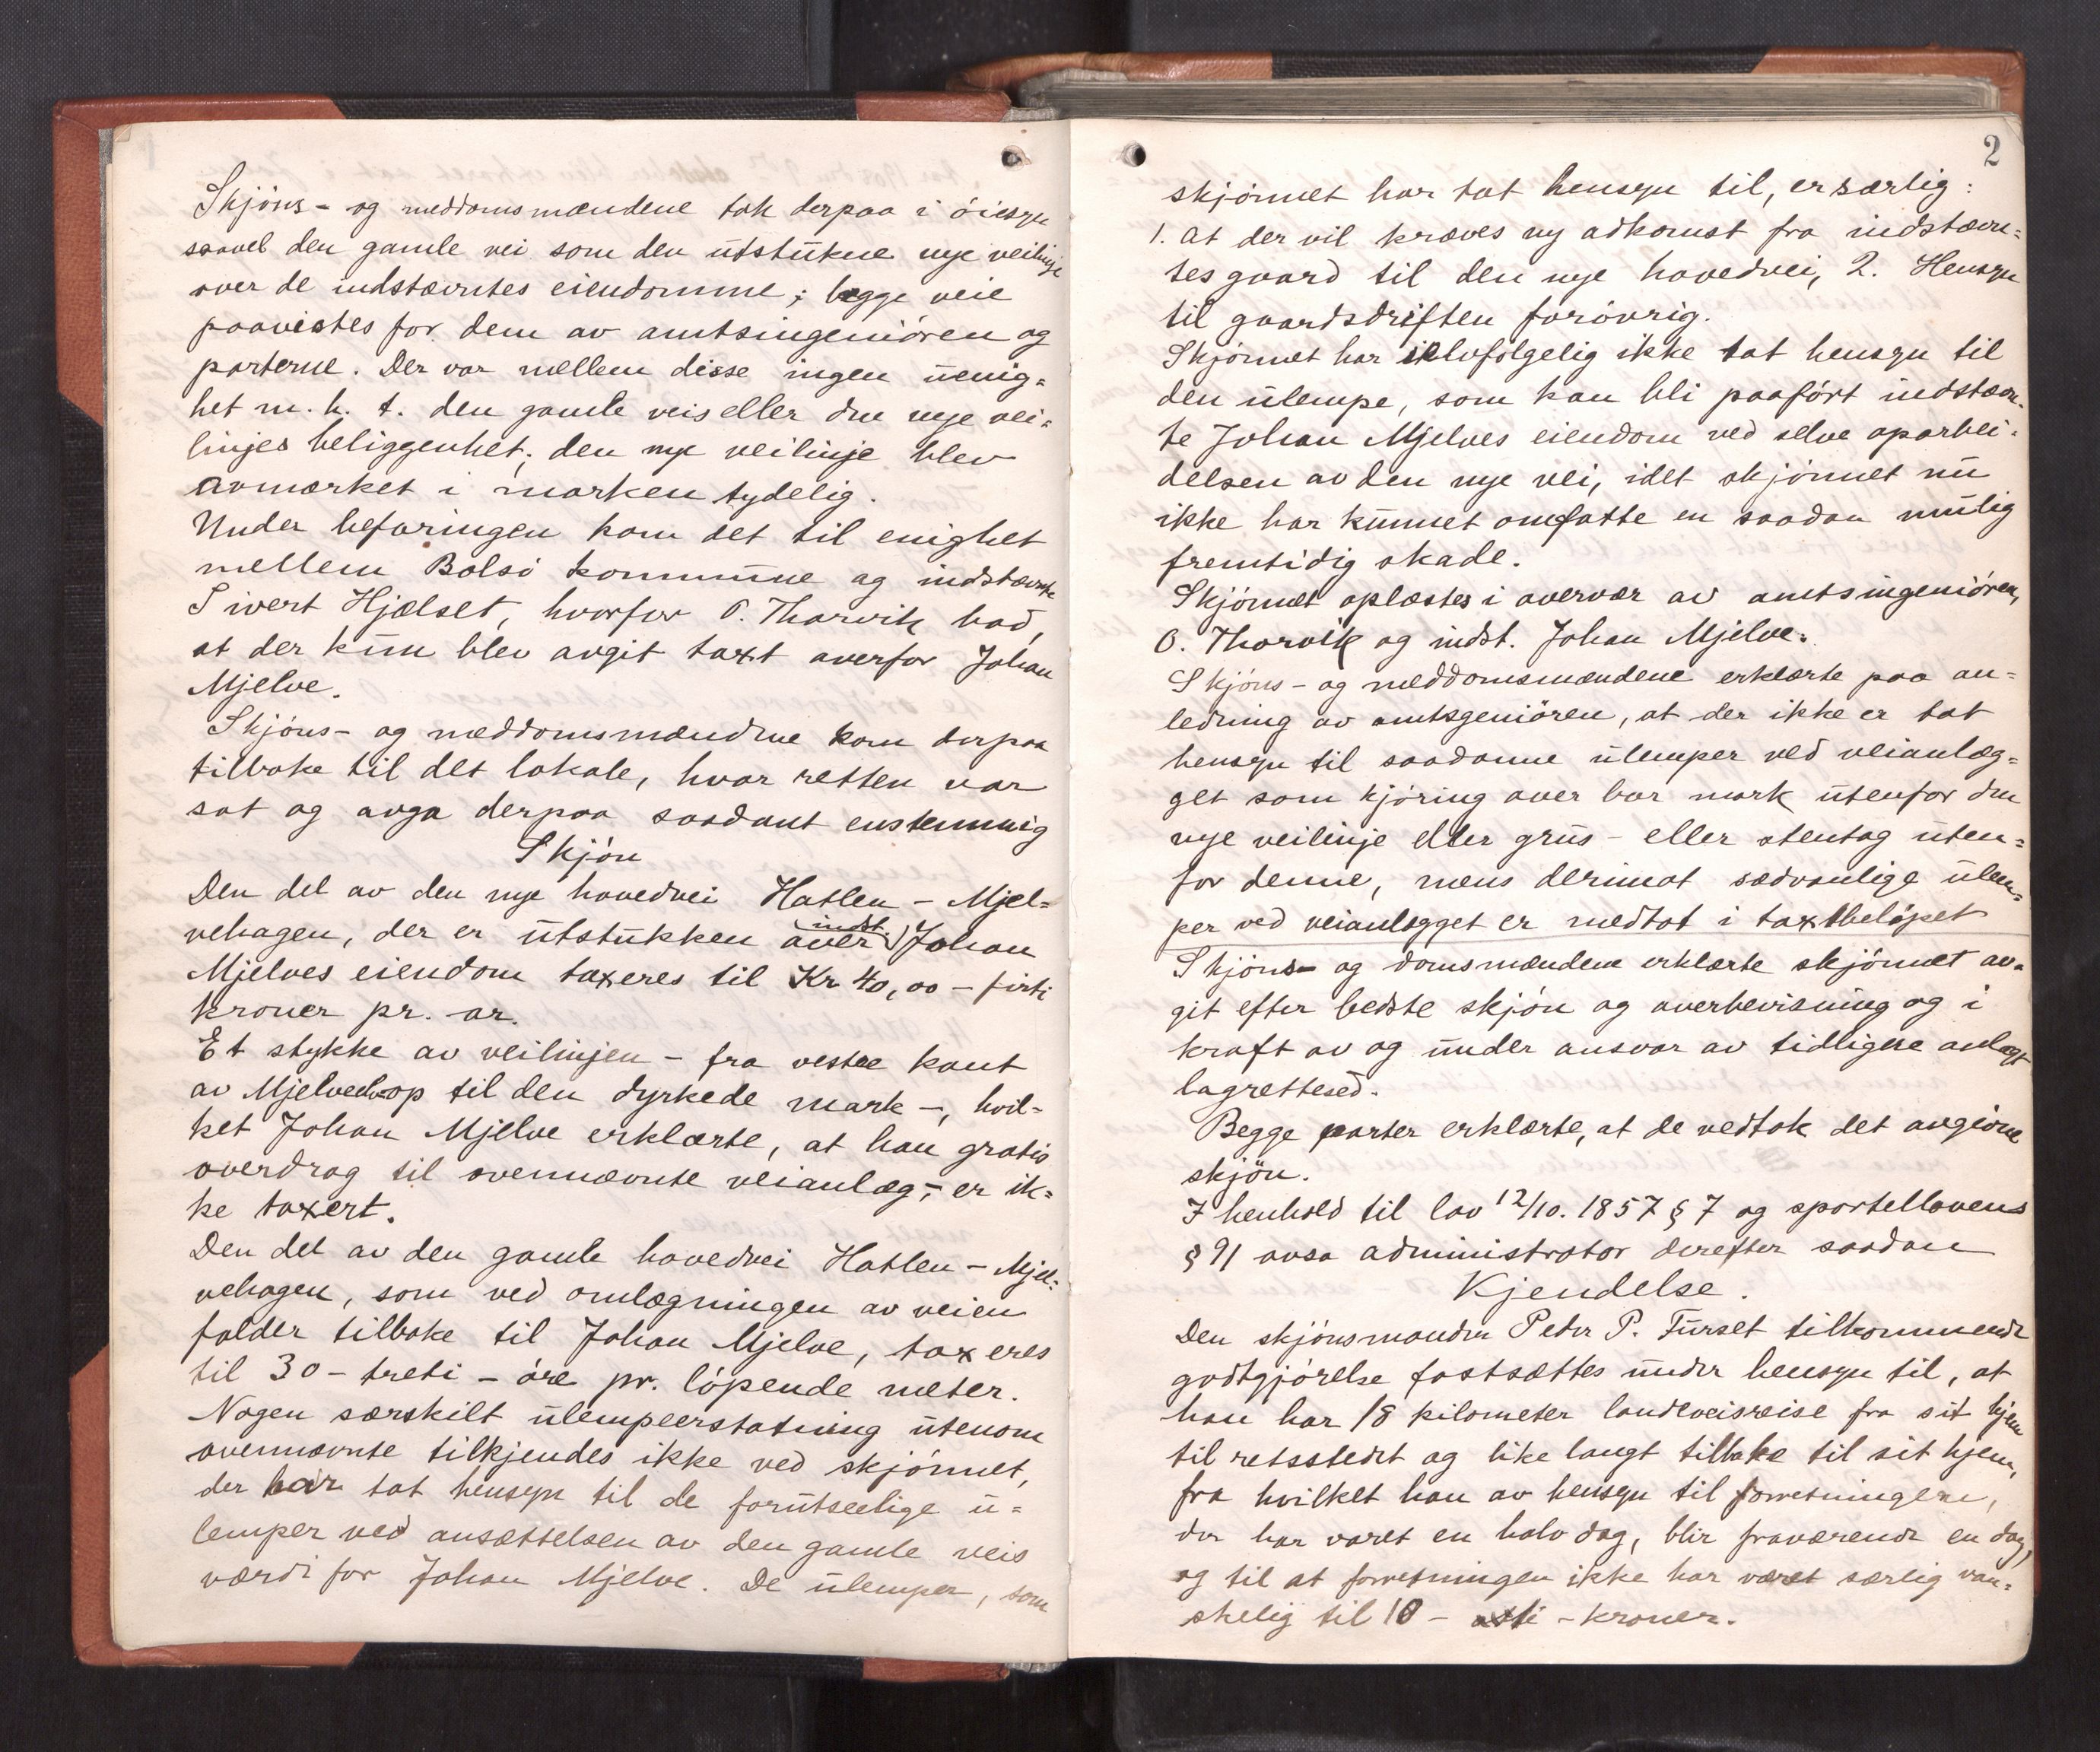 Skjöns- og meddomsmændene tok derpaa i öiesyn
saavel den gamle vei som den utstukne nye veilinje
over de indstævntes eiendomme; begge veie
paavistes for dem av amtsingeniören og
parterne. Der var mellem disse ingen uenig=
het m. h. t. den gamle veis eller den nye vei=
linjes beliggenhet; den nye veilinje blev
avmerket i marken tydelig.
Under befaringen kom det til enighet
mellem Bolsö kommune og indstævnte
Sivert Hjælset, hvorfor O. Thorvik bad,
at der kun blev avgit taxt overfor Johan
Mjelve.
Skjöns- og meddomsmændene kom derpaa
tilbake til det lokale, hvor retten var
sat og avga derpaa saadant enstemmig
Skjön
Den del av den nye hovedvei Hatlen - Mjel=
vehagen, der er utstukken over indst. Johan
Mjelves eiendom taxeres til Kr 40,00 - firti
kroner pr. ar.
Et stykke av veilinjen - fra vestre kant
av Mjelvedop til den dyrkede mark -, hvil=
ket Johan Mjelve erklærte, at han gratis
overdrog til ovennævnte veianlæg, - er ik=
ke taxert.
Den del av den gamle hovedvei Hatlen - Mjel=
vehagen, som ved omlægningen av veien
falder tilbake til Johan Mjelve, taxeres
til 30 - treti - öre pr. löpende meter.
Nogen særskilt ulempeerstatning utenom
ovennævnte tilkjendes ikke ved skjönnet,
der har tat hensyn til de forutseelige u=
lemper ved ansættelsen av den gamle veis
værdi for Johan Mjelve. De ulemper, som
2
skjönnet har tat hensyn til, er særlig:
1. at der vil kræves ny adkomst fra indstævn=
tes gaard til den nye hovedvei, 2. Hensyn
til gaardsdriften forövrig.
Skjönnet har selvfölgelig ikke tat hensyn til
den ulempe, som kan bli paafört indstævn=
te Johan Mjelves eiendom ved selve oparbei=
delsen av den nye vei, idet skjönnet nu
ikke har kunnet omfatte en saadan mulig
fremtidig skade.
Skjönnet oplæstes i overvær av amtsingeniören,
O. Thorvik og indst. Johan Mjelve.
Skjöns- og meddomsmændene erklærte paa an=
ledning av amtsgeniören, at der ikke er tat
hensyn til saadanne ulemper ved veianlæg=
get som kjöring over bar mark utenfor den
nye veilinje eller grus- eller stentag uten=
for denne, mens derimot sædvanlige ulem=
per ved veianlægget er medtat i taxtbelöpet
Skjöns- og domsmændene erklærte skjönnet av=
git efter bedste skjön og overbevisning og i
kraft av og under ansvar av tidligere avlagt
lagretteed.
Begge parter erklærte, at de vedtok det avgivne
skjön.
I henhold til lov 12/10. 1857 § 7 og sportellovens
§ 91 avsa administrator derefter saadan
Kjendelse.
Den skjönsmanden Peder P. Furset tilkommende
godtgjörelse fastsættes under hensyn til, at
han har 18 kilometer landeveisreise fra sit hjem
til retsstedet og like langt tilbake til sit hjem,
fra hvilket han av hensyn til forretningen,
der har varet en halv dag, blir fraværende en dag,
og til at forretningen ikke har været særlig van=
skelig til 10 - ti - kroner.